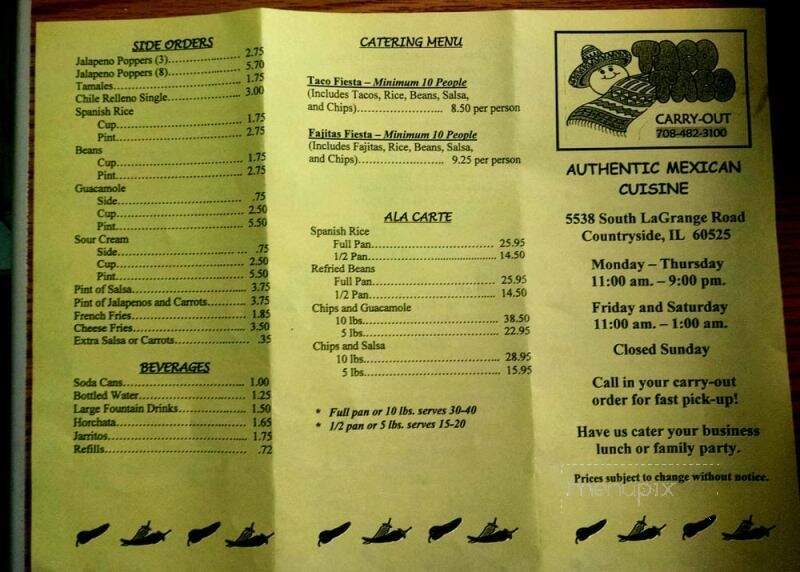 SIDE ORDERS
Jalapeno Poppers (3)........................ 2.75
Jalapeno Poppers (8)........................ 5.70
Tamales........................ 1.75
Chile Relleno Single........................ 3.00
Spanish Rice
Cup........................ 1.75
Pint........................ 2.75
Beans
Cup........................ 1.75
Pint........................ 2.75
Guacamole
Side........................ .75
Cup........................ 2.50
Pint........................ 5.50
Sour Cream
Side........................ .75
Cup........................ 2.50
Pint........................ 5.50
Pint of Salsa........................ 3.75
Pint of Jalapenos and Carrots........................ 3.75
French Fries........................ 1.85
Cheese Fries........................ 3.50
Extra Salsa or Carrots........................ .35
BEVERAGES
Soda Cans........................ 1.00
Bottled Water........................ 1.25
Large Fountain Drinks........................ 1.50
Horchata........................ 1.65
Jarritos........................ 1.75
Refills........................ .72
CATERING MENU
Taco Fiesta – Minimum 10 People
(Includes Tacos, Rice, Beans, Salsa,
and Chips)........................ 8.50 per person
Fajitas Fiesta – Minimum 10 People
(Includes Fajitas, Rice, Beans, Salsa,
and Chips)........................ 9.25 per person
ALA CARTE
Spanish Rice
Full Pan........................ 25.95
1/2 Pan........................ 14.50
Refried Beans
Full Pan........................ 25.95
1/2 Pan........................ 14.50
Chips and Guacamole
10 lbs........................ 38.50
5 lbs........................ 22.95
Chips and Salsa
10 lbs........................ 28.95
5 lbs........................ 15.95
* Full pan or 10 lbs. serves 30-40
* 1/2 pan or 5 lbs. serves 15-20
TACO
CARRY-OUT
708-482-3100
AUTHENTIC MEXICAN
CUISINE
5538 South LaGrange Road
Countryside, IL 60525
Monday – Thursday
11:00 am. – 9:00 pm.
Friday and Saturday
11:00 am. – 1:00 am.
Closed Sunday
Call in your carry-out
order for fast pick-up!
Have us cater your business
lunch or family party.
Prices subject to change without notice.
menupix